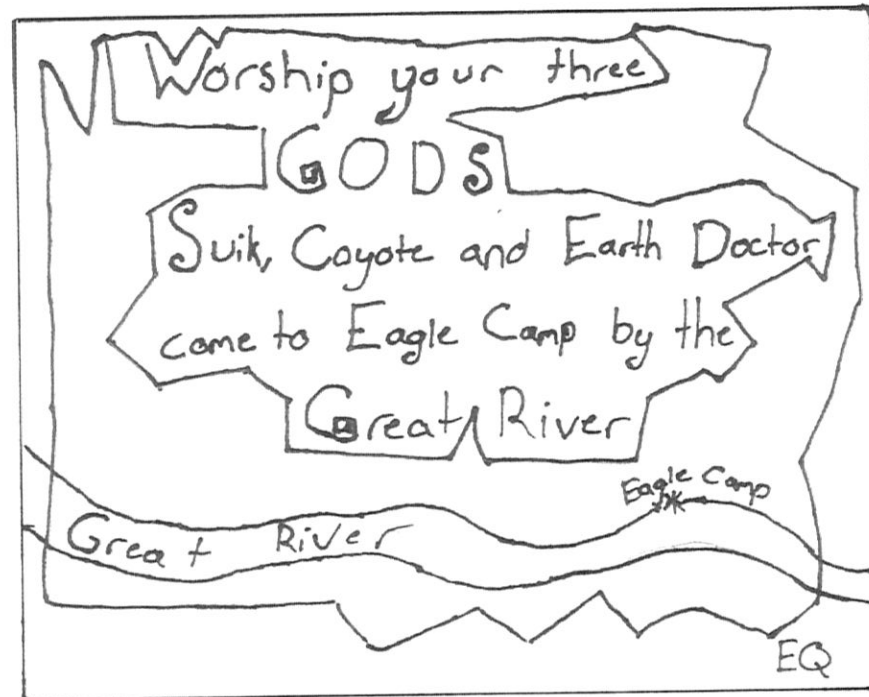 Worship your three
GODS
Suik, Coyote and Earth Doctor
come to Eagle Camp by the
Great River
Eagle Camp
Great River
EQ